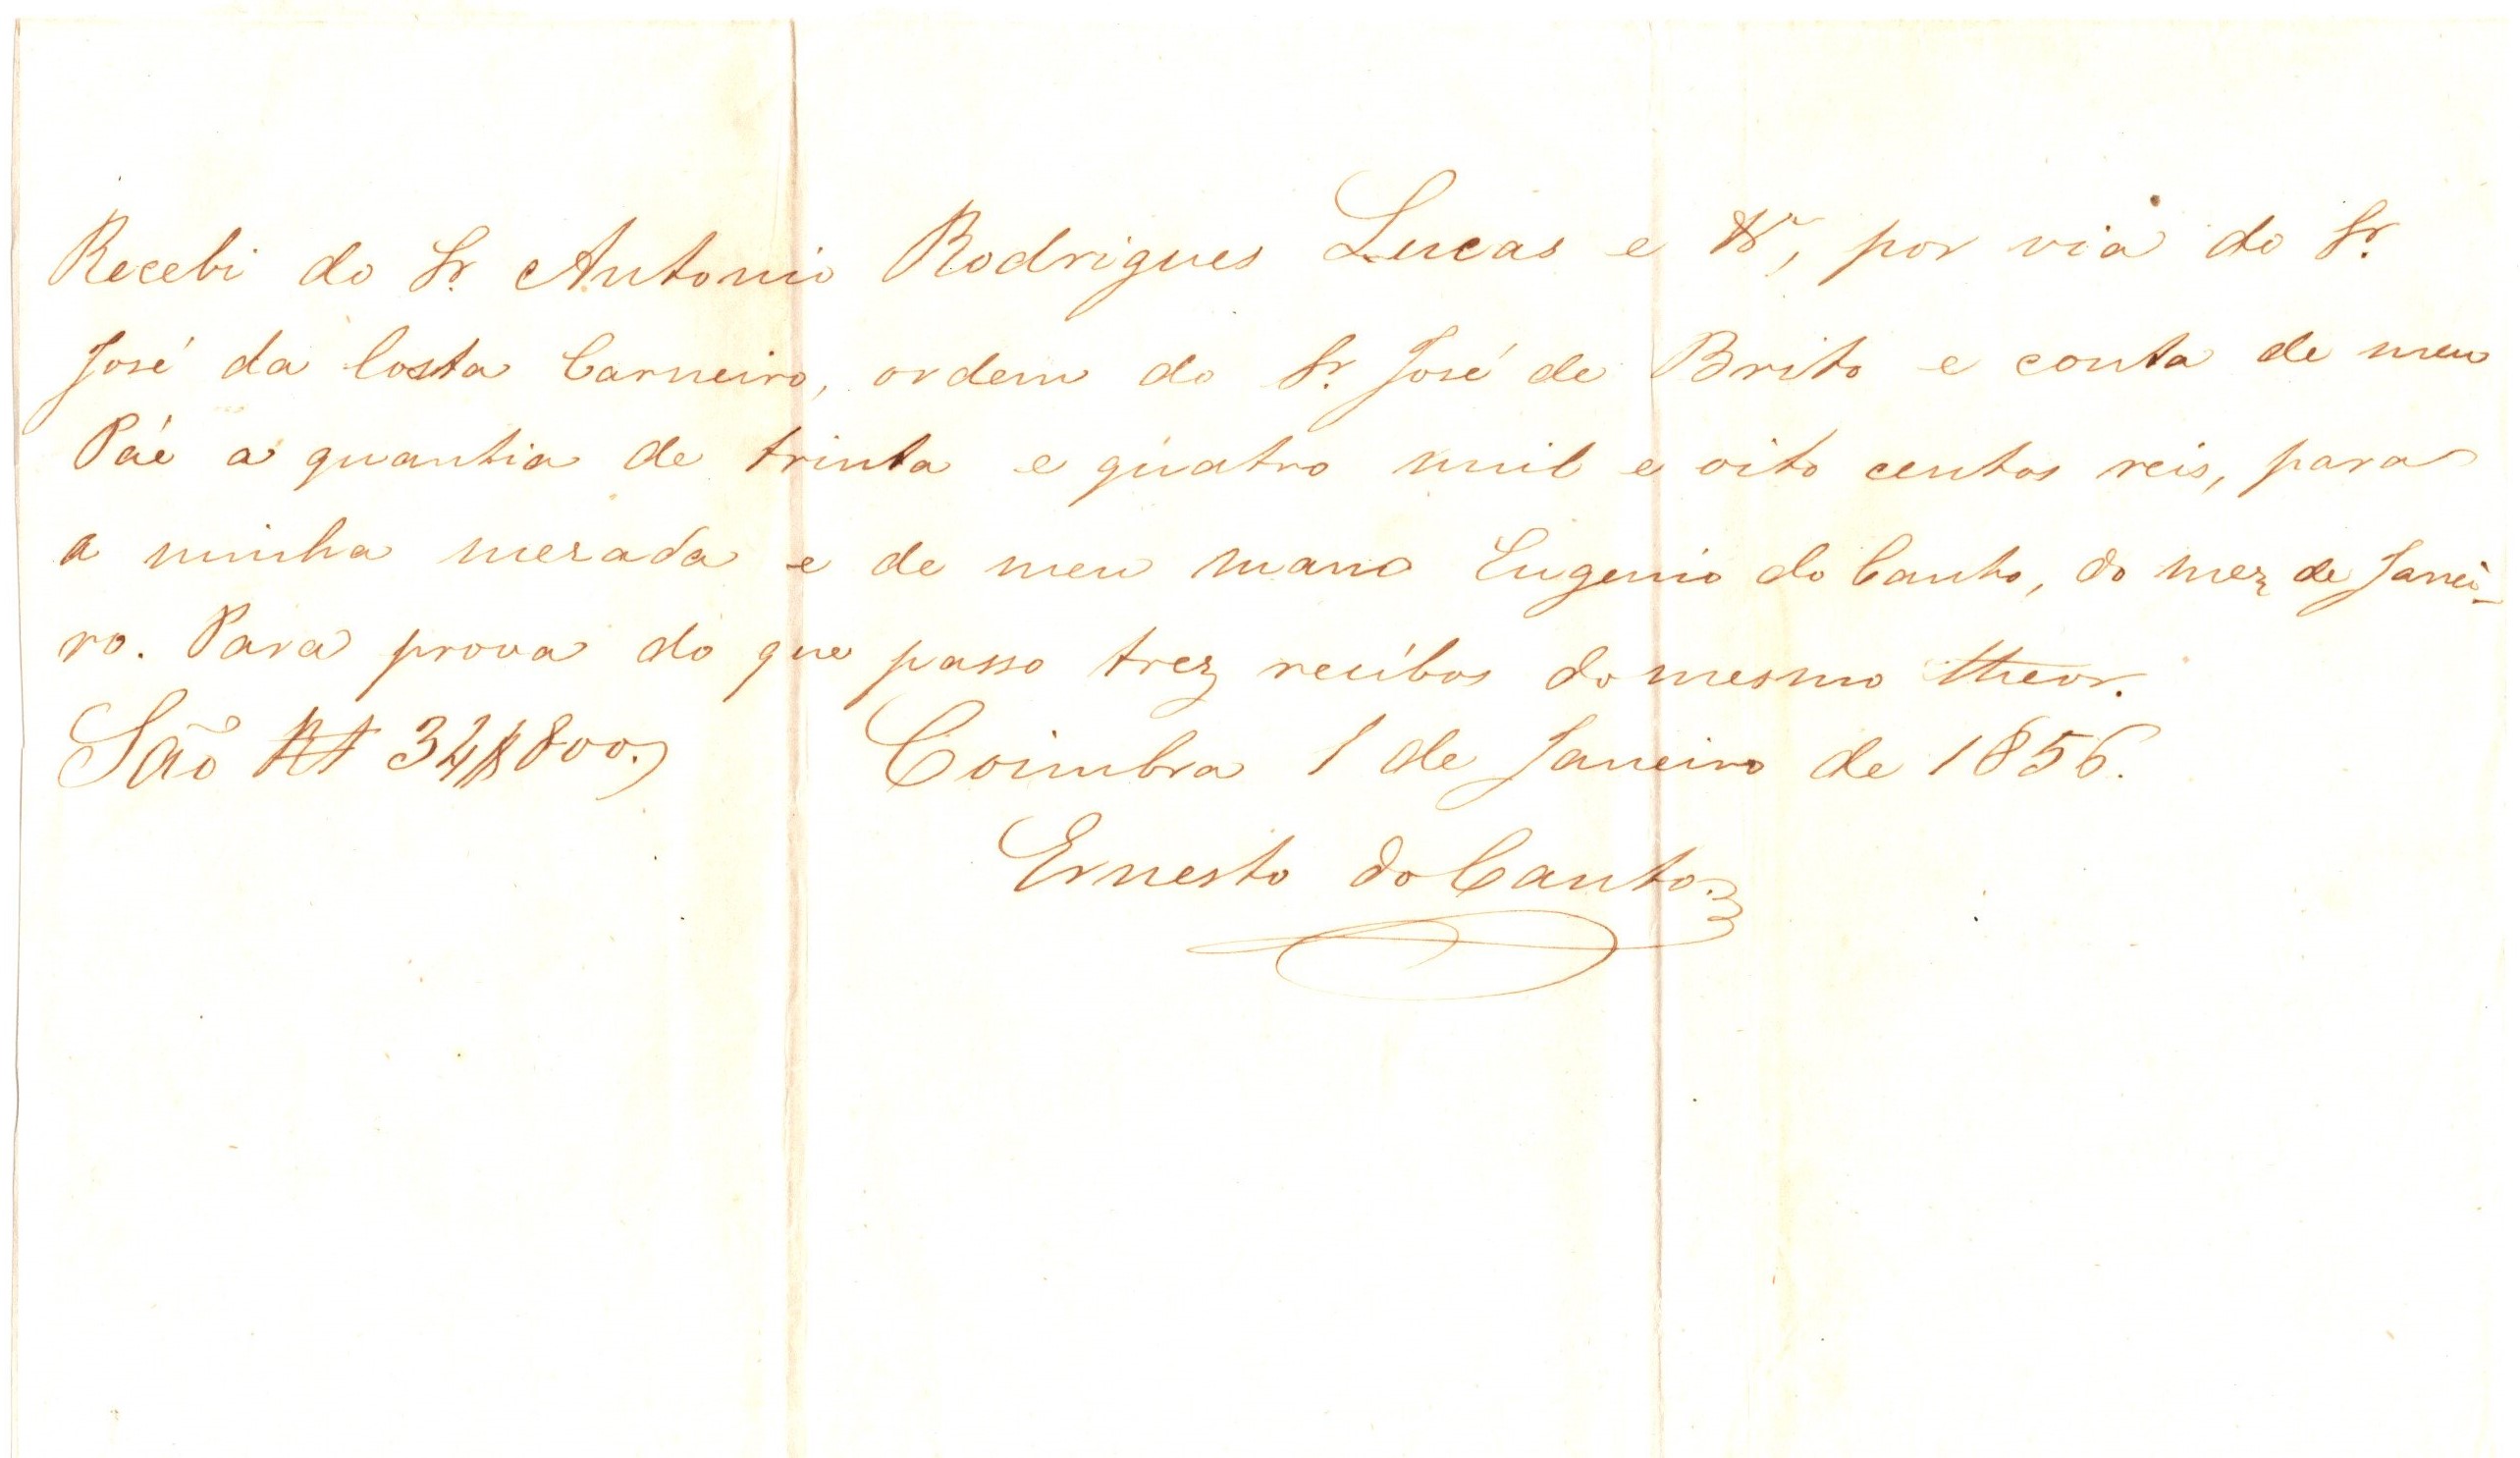 Recebi do Sr. Antonio Rodrigues Lucas e , por via do Sr.
José da Costa Carneiro, ordem do Sr. José de Brito e conta de meu
Páe a quantia de trinta e quatro mil e oito centos reis, para
a minha mesada e de meu mano Eugenio do Canto, do mez de Janei-
ro. Para prova do que passo trez recibos do mesmo theor.
São R$ 34$800. Coimbra 1 de Janeiro de 1856.
Ernesto do Canto.